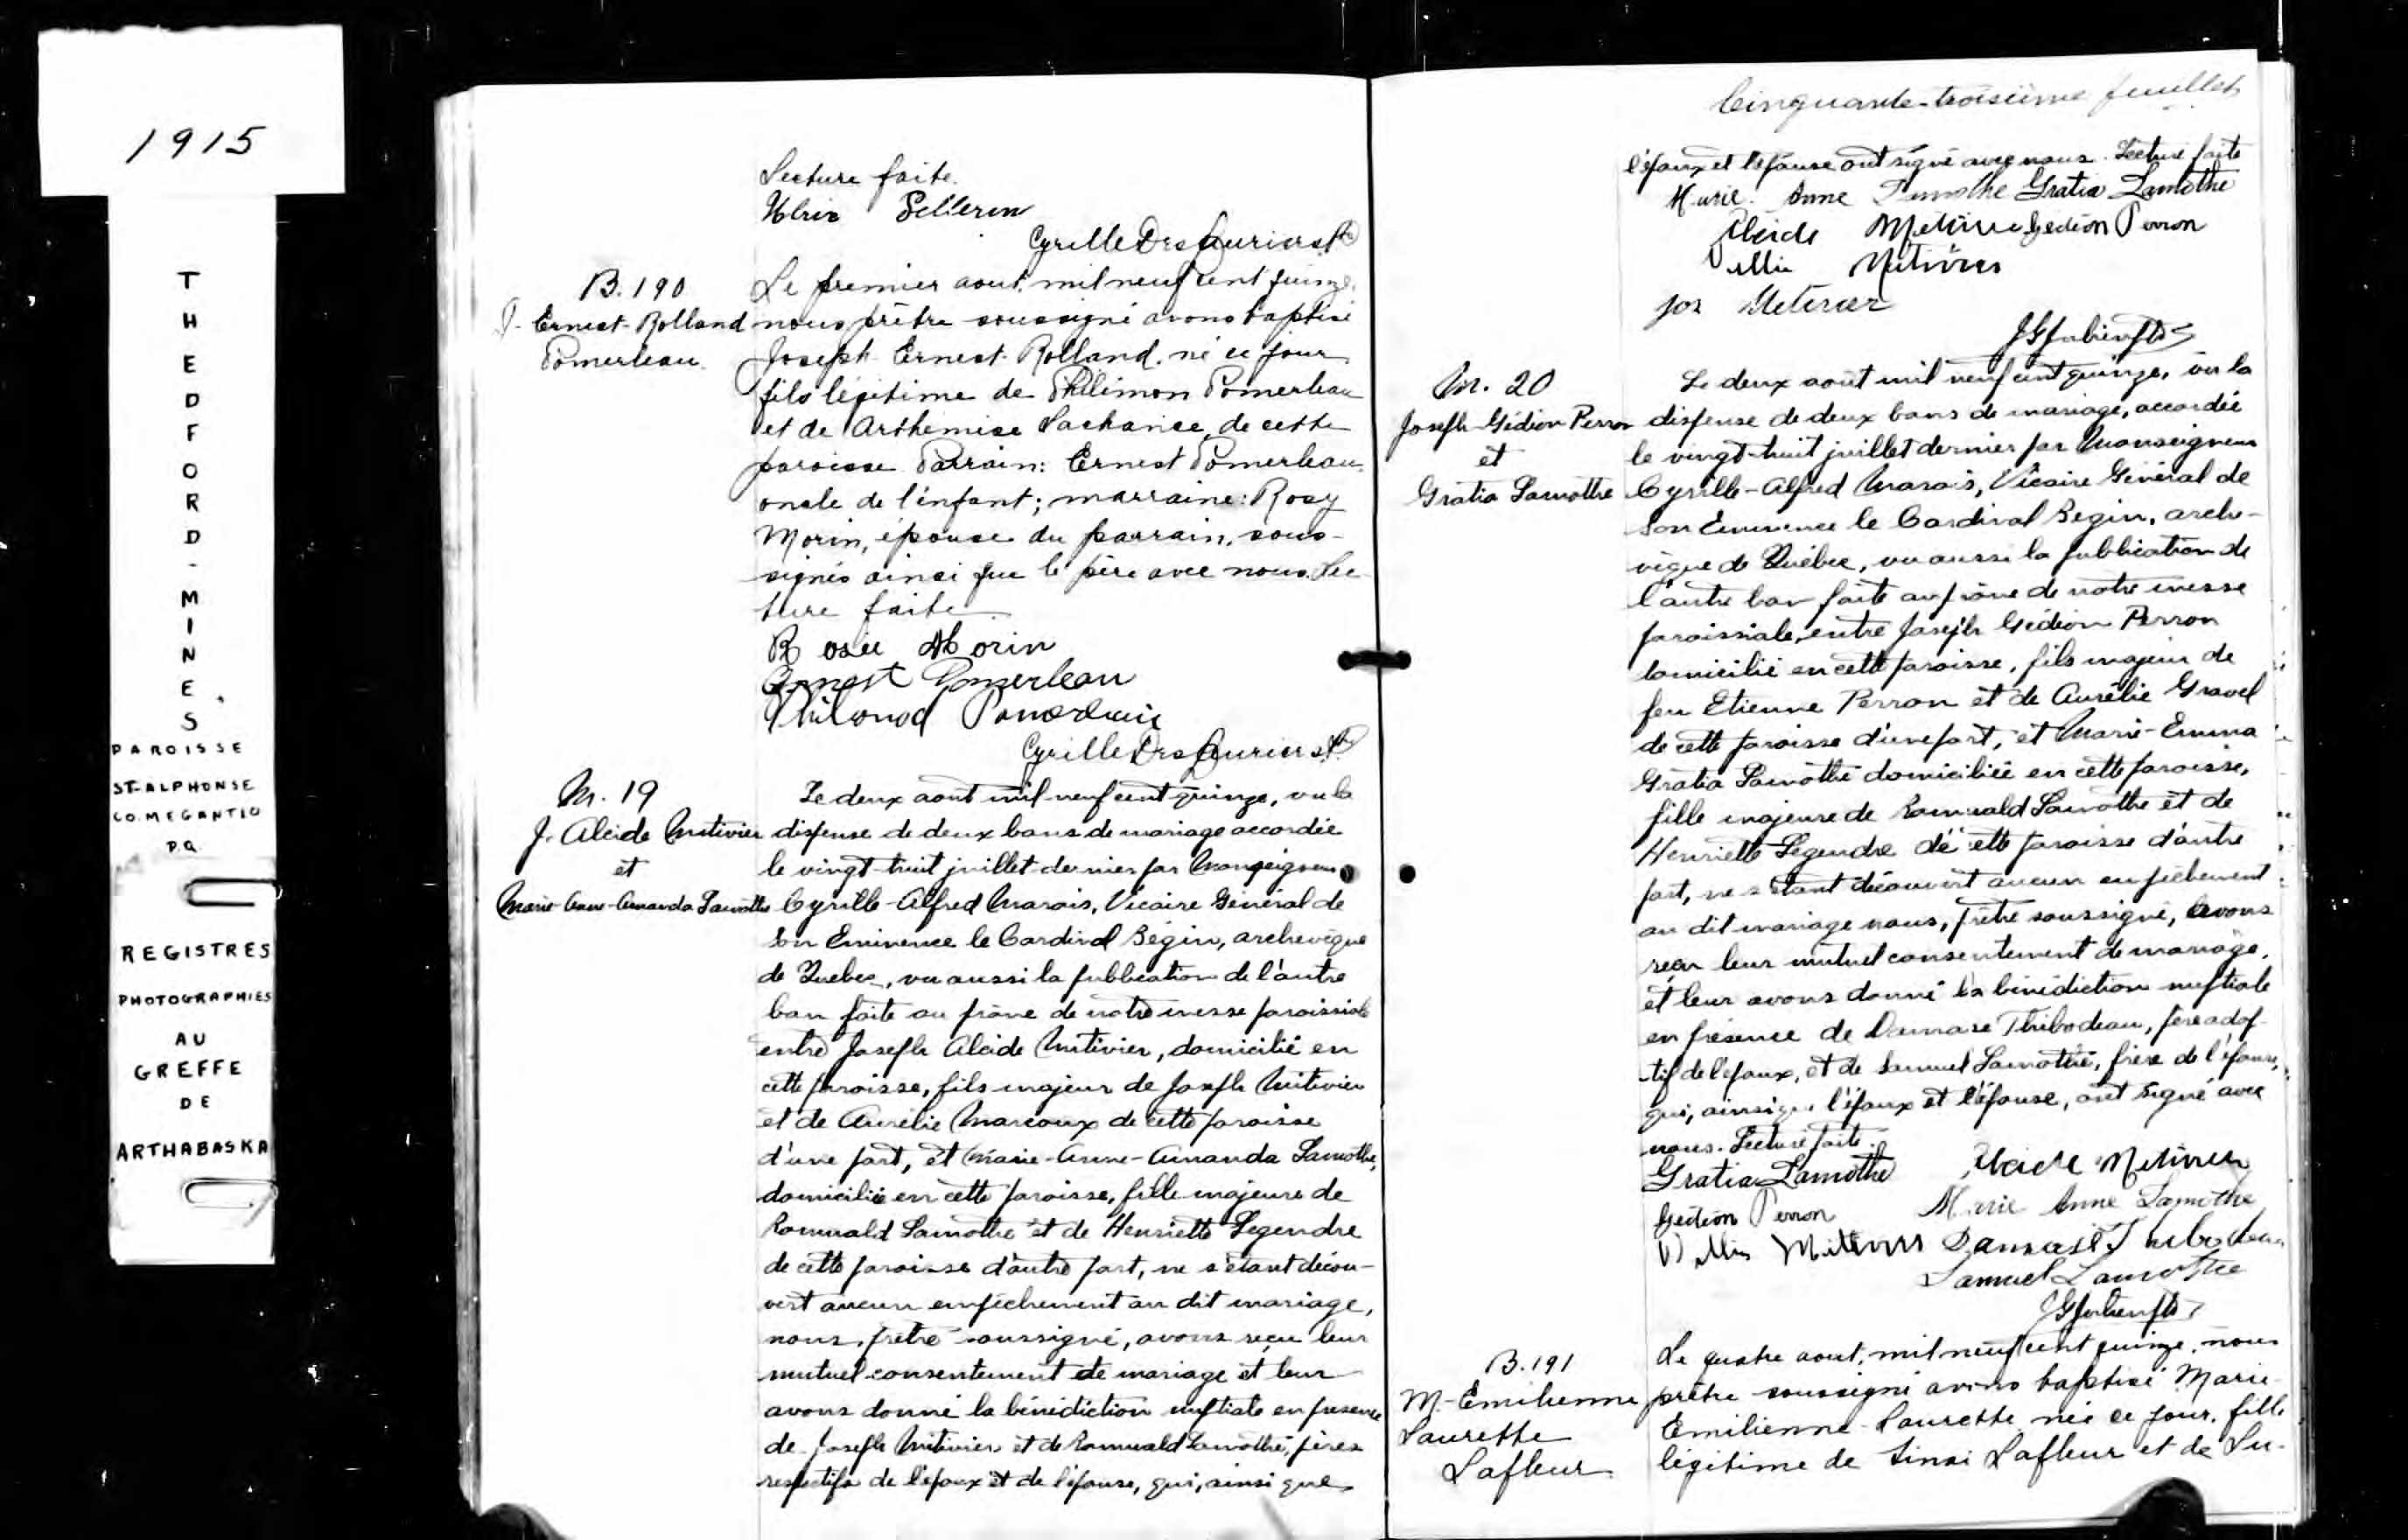 1915
THEDFORD-MINES
PAROISSE
ST-ALPHONSE
CO. MEGANTIC
P.Q.
REGISTRES
PHOTOGRAPHIES
AU
GREFFE
DE
ARTHABASKA
Lecture faite.
Pellerin
Cyrille DesLauriers Ptre
B. 190
J. Ernest-Rolland
Pomerleau.
Le premier aout, mil neuf cent quinze,
nous prêtre soussigné avons baptisé
Joseph Ernest Rolland, né ce jour
fils légitime de Philimon Pomerleau
et de Arthemise Lachance, de cette
paroisse. Parrain: Ernest Pomerleau,
oncle de l'enfant; marraine: Rosy
Morin, épouse du parrain, sous-
signés ainsi que le père avec nous. Lec-
ture faite
Rosie Morin
Ernest Pomerleau
Cyrille DesLauriers Ptre
M. 19
J. Alcide Métivier
et
Marie-Anne-Amanda Lamothe
Le deux août mil-neuf cent quinze, vu la
dispense de deux bans de mariage accordée
le vingt-huit juillet dernier par Monseigneur
Cyrille-Alfred Marois, Vicaire Général de
Son Eminence le Cardinal Bégin, archevêque
de Québec, vu aussi la publication de l'autre
ban faite au prône de notre messe paroissiale
entre Joseph Alcide Métivier, domicilié en
cette paroisse, fils majeur de Joseph Métivier
et de Aurélie Marcoux de cette paroisse
d'une part, et Marie-Anne-Amanda Lamothe,
domiciliée en cette paroisse, fille majeure de
Romuald Lamothe et de Henriette Legendre
de cette paroisse d'autre part, ne s'étant décou-
vert aucun empêchement au dit mariage,
nous, prêtre soussigné, avons reçu leur
mutuel consentement de mariage et leur
avons donné la bénédiction nuptiale en présence
de Joseph Métivier et de Romuald Lamothe, pères
respectifs de l'époux et de l'épouse, qui, ainsi que
Cinquante-troisième feuillet
l'époux et l'épouse ont signé avec nous. Lecture faite
Marie. Anne Lamothe Gratia Lamothe
Alcide Metivier Gedéon Perron
Metivier
Jos Metivier
M. 20
Joseph-Gédéon Perron
et
Gratia Lamothe
Le deux août mil neuf cent quinze, vu la
dispense de deux bans de mariage, accordée
le vingt-huit juillet dernier par Monseigneur
Cyrille-Alfred Marois, Vicaire Général de
Son Eminence le Cardinal Bégin, arche-
vêque de Québec, vu aussi la publication de
l'autre ban faite au prône de notre messe
paroissiale, entre Joseph Gédéon Perron
domicilié en cette paroisse, fils majeur de
feu Etienne Perron et de Aurélie Gravel
de cette paroisse d'une part, et Marie-Emma
Gratia Lamothe domiciliée en cette paroisse,
fille majeure de Romuald Lamothe et de
Henriette Legendre de cette paroisse d'autre
part, ne s'étant découvert aucun empêchement
au dit mariage nous, prêtre soussigné, avons
reçu leur mutuel consentement de mariage,
et leur avons donné la bénédiction nuptiale
en présence de Damase Thibodeau, père adop-
tif de l'époux, et de Samuel Lamothe, frère de l'épouse,
qui, ainsi que l'époux et l'épouse, ont signé avec
nous. Lecture faite.
Gratia Lamothe Alcide Metivier
Gedéon Perron Marie Anne Lamothe
Metivier Damase Thibodeau
Samuel Lamothe
B. 191
M.-Emilienne
Laurette
Lafleur
Le quatre aout, mil neuf cent quinze, nous
prêtre soussigné avons baptisé Marie-
Emilienne-Laurette, née ce jour, fille
légitime de Sinai Lafleur et de Lu-